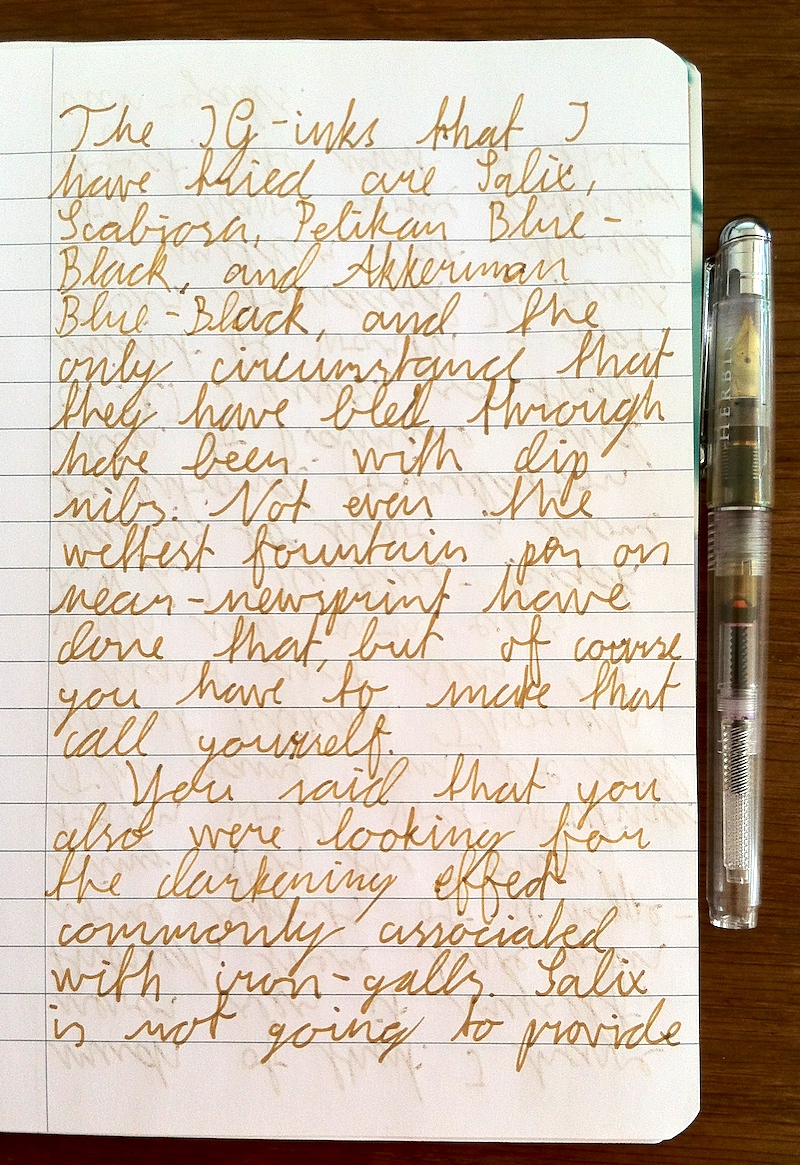 The IG-inks that I
have tried are Salix,
Scabiosa, Pelikan Blue-
Black, and Akkerman
Blue-Black, and the
only circumstance that
they have bled through
have been with dip
nibs. Not even the
wettest fountain pen on
near-newsprint have
done that, but of course
you have to make that
call yourself.
You said that you
also were looking for
the darkening effect
commonly associated
with iron-galls. Salix
is not going to provide
HERBIN